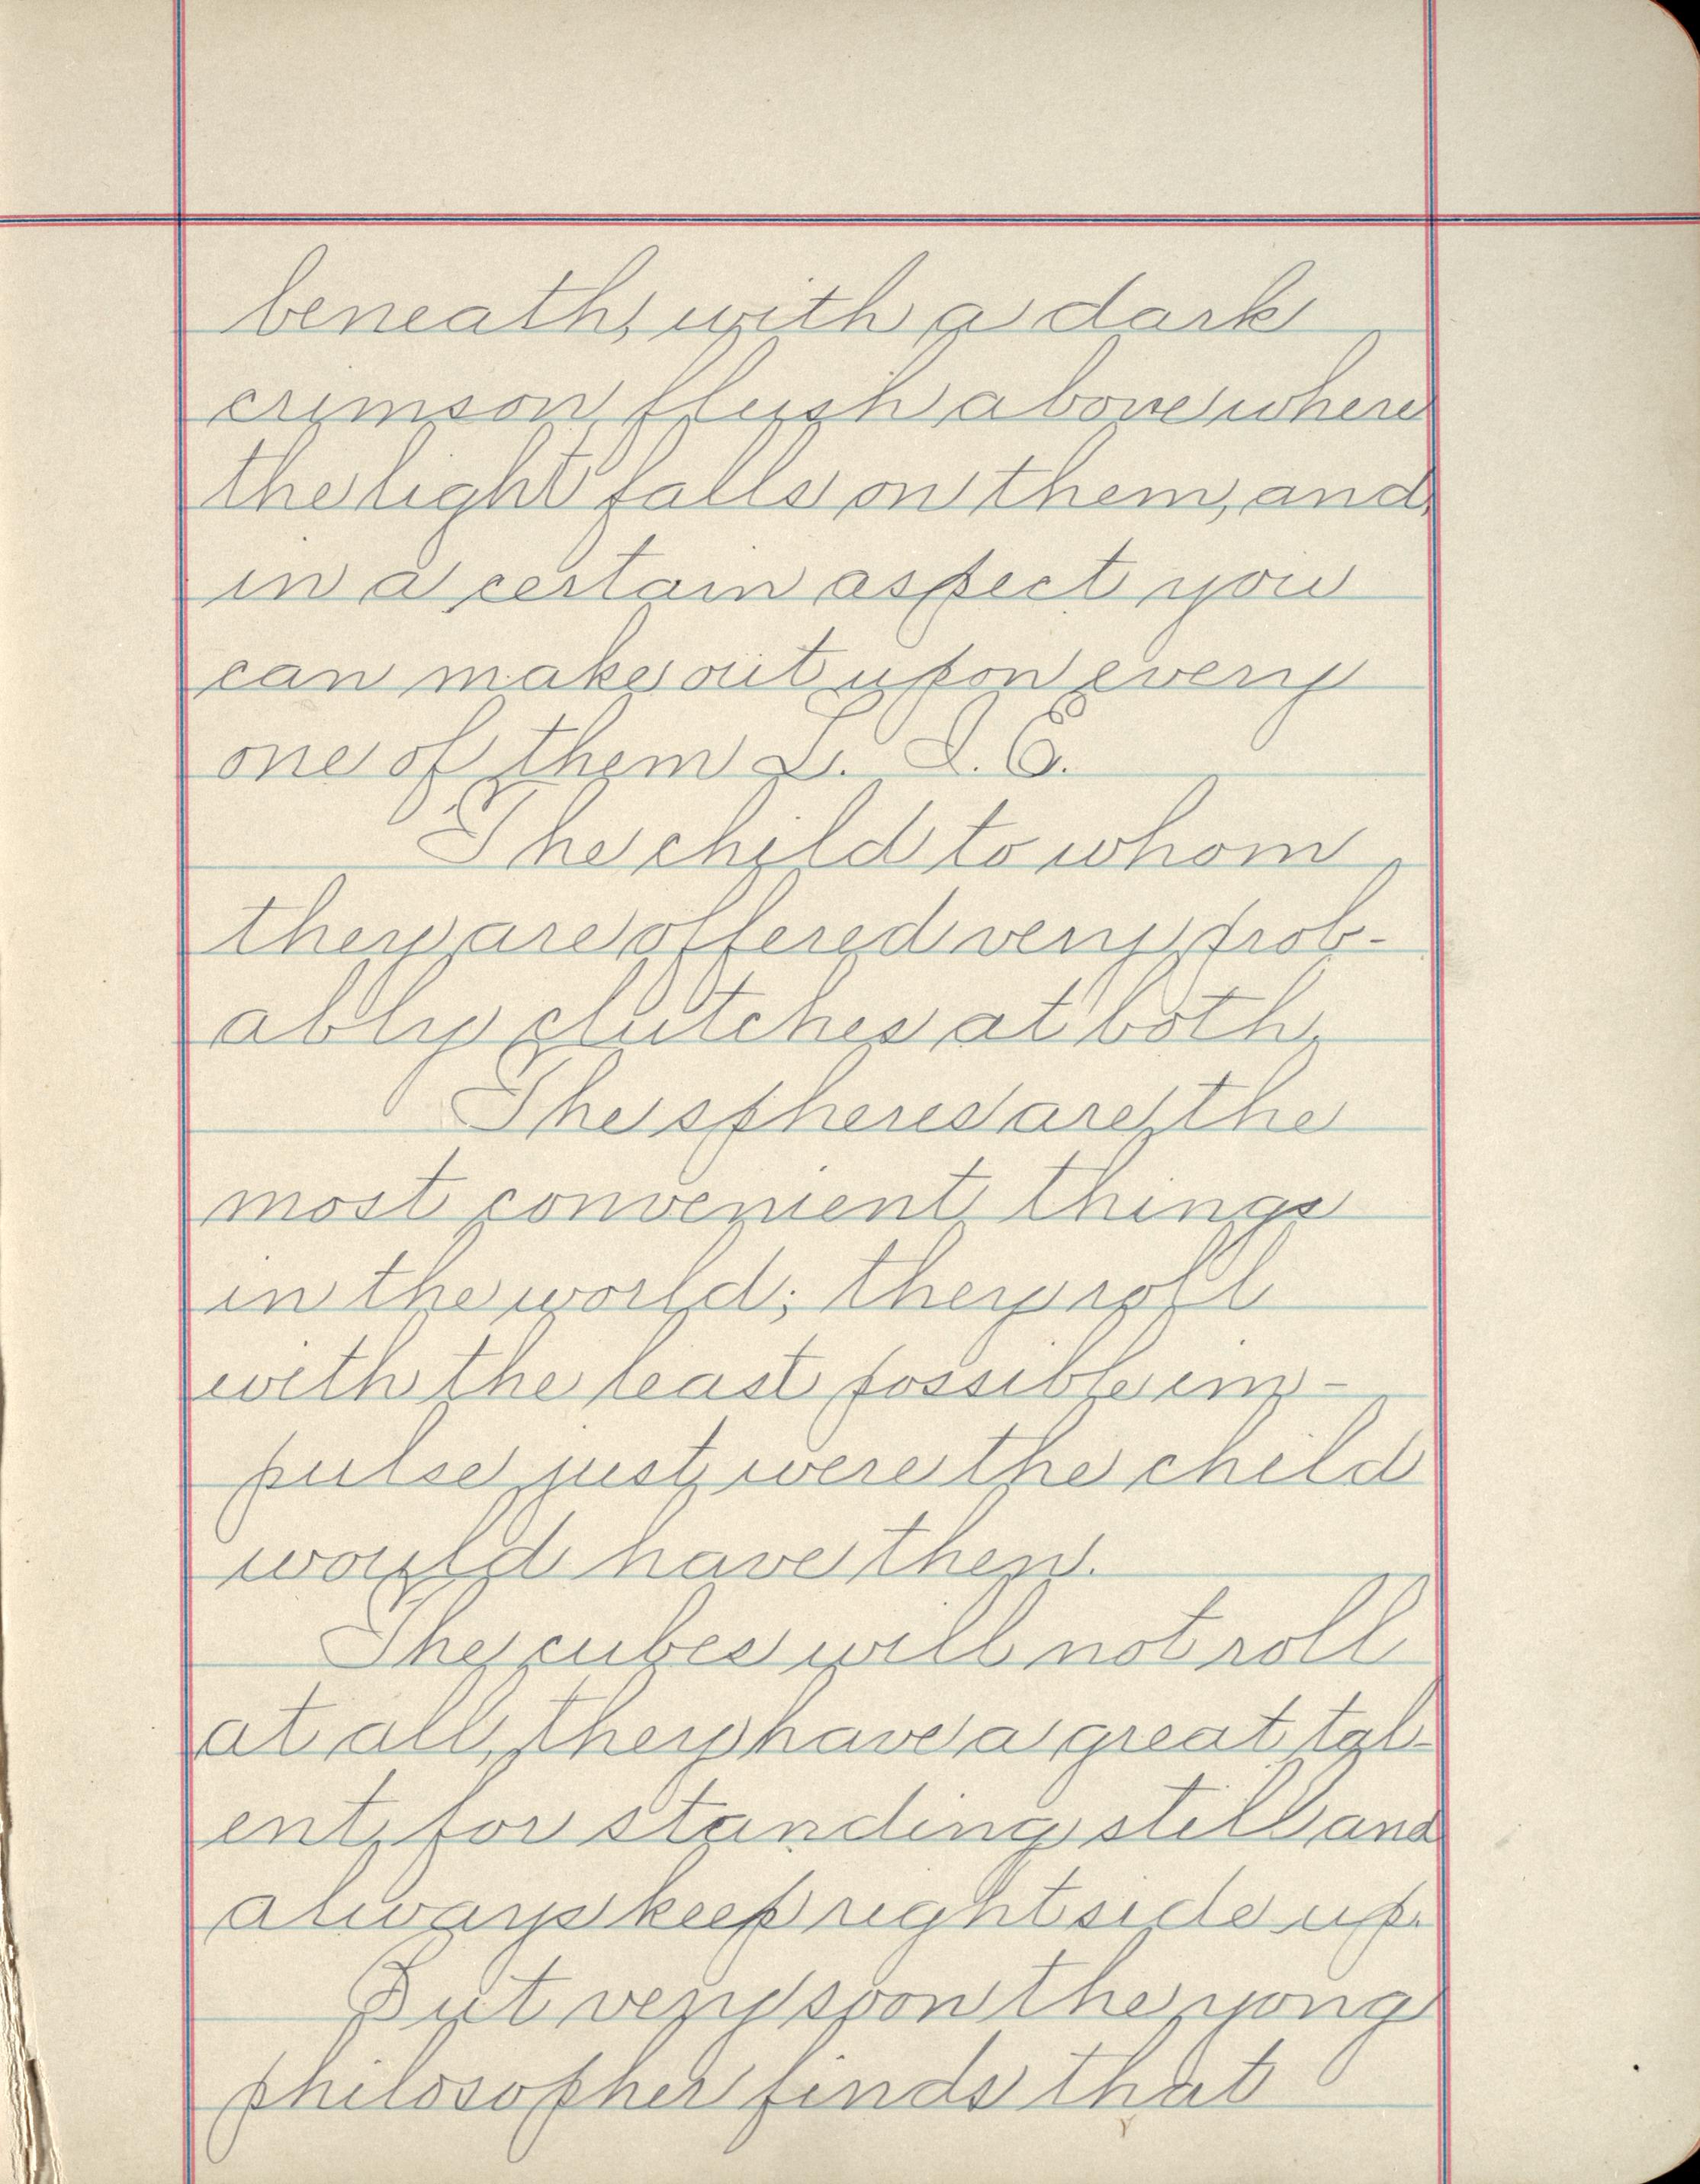 beneath, with a dark
crimson flush above where
the light falls on them, and,
in a certain aspect you
can make out upon every
one of them L. I. E.
The child to whom
they are offered very prob-
ably clutches at both.
The spheres are the
most convenient things
in the world; they roll
with the least possible im-
pulse just were the child
would have then.
The cubes will not roll
at all, they have a great tal-
ent for standing still and
always keep right side up.
But very soon the yong
philosopher finds that